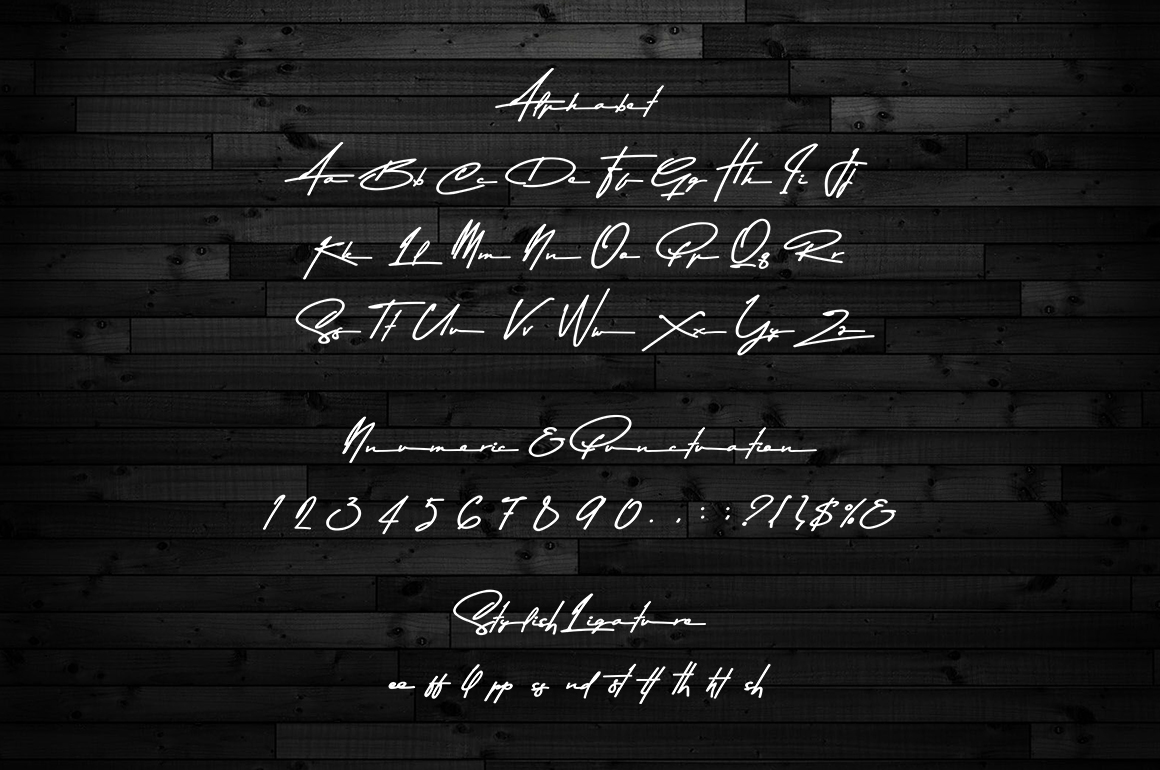 Alphabet
Aa Bb Cc De Ff Gg Hh Ii Jj
Kk Ll Mm Nn Oo Pp Qq Rr
Ss Tt Uu Vv Ww Xx Yy Zz
Nuumeric & Punctuation
1 2 3 4 5 6 7 8 9 0 . , : ; ? { } $ % &
Stylish Ligature
ee ff ll pp ss nd st tt th ht sh